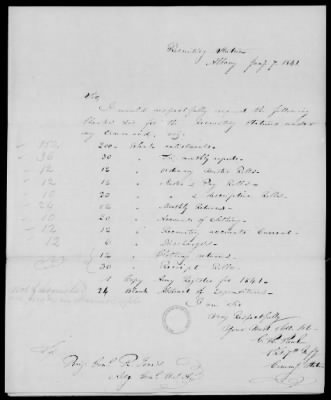 Recruiting Station
Albany Jany 7. 1841
Sir,
I would respectfully request the following
blanks for the Recruiting Stations under
my command, viz:
150 200 Blank enlistments
36 30 " Tri monthly reports
12 12 " Ordinary Muster Rolls
12 12 " Muster & Pay Rolls
10 20 " " & Descriptive Rolls
24 12 " Monthly Returns
10 20 " Accounts of Clothing
12 12 " Recruiting accounts Current
12 6 " Discharges
12 " Clothing returns
30 " Receipt Rolls
1 Copy Army Register for 1841
24 Blank Abstract of Expenditures
I am Sir
Very Respectfully
Your Obt. Servt.
To
Brig. Genl. R. Jones
Adjt. Genl. U.S.A.